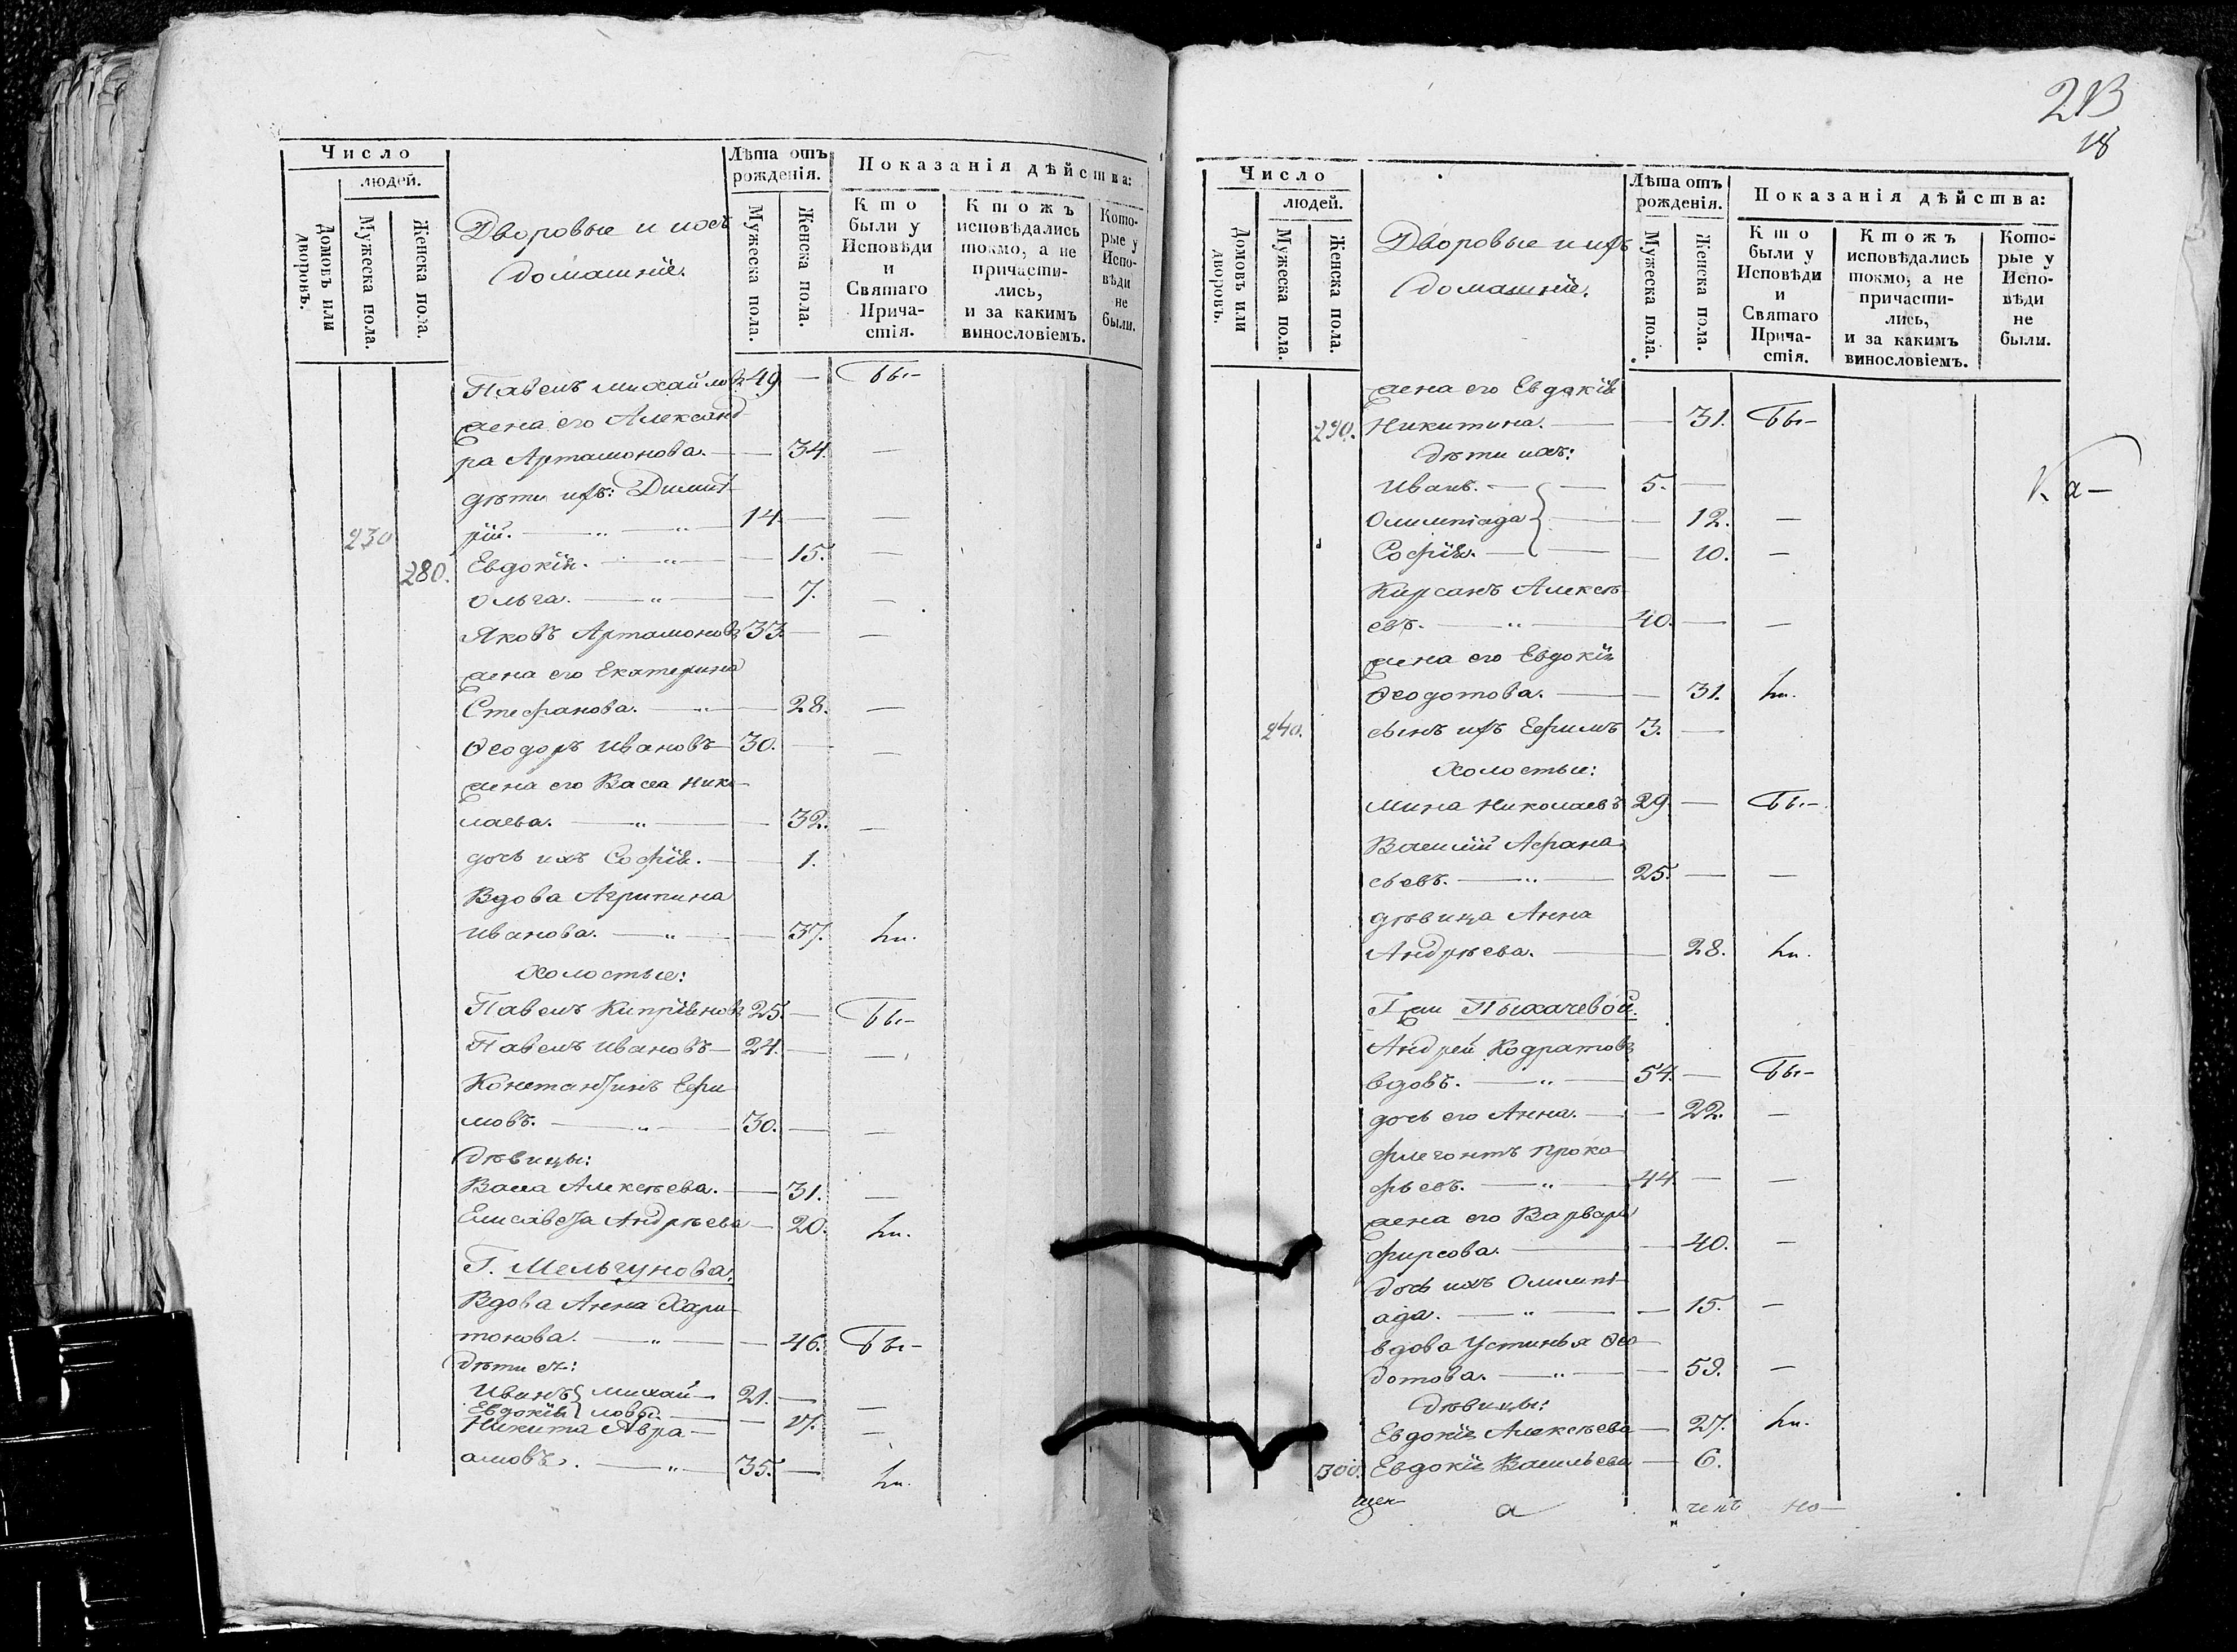 Число
людей.
Домовъ или дворовъ.
Мужеска пола.
Женска пола.
Дворовые и ихъ
домашніе.
Лѣта отъ рожденія.
Мужеска пола.
Женска пола.
Показанія дѣйства:
Кто были у Исповѣди и Святаго Причастія.
Ктожъ исповѣдались токмо, а не причастились, и за какимъ винословіемъ.
Которые у Исповѣди не были.
Павелъ Михайловъ 49 — Бы-
жена его Александ-
ра Артамонова. — — 34. —
дѣти ихъ: Димит-
230 рій. — „ — 14. — —
280. Евдокія. — „ — — 15. —
Ольга. — „ — — 7. —
Яковъ Артамоновъ 33. — —
жена его Екатерина
Стефанова. — „ — — 28. —
Ѳеодоръ Ивановъ — 30. — —
жена его Васса Нико-
лаева. — „ — — 32. —
дочь ихъ Софія. — — 1.
Вдова Агрипина
Иванова. — „ — — 37. ли.
Холостые:
Павелъ Кипріяновъ 25. — Бы-
Павелъ Ивановъ — 24. — —
Константинъ Ефи-
мовъ. — „ — 30. — —
Дѣвицы:
Васса Алексѣева. — — 31. —
Елисавета Андрѣева — 20. ли.
Г. Мельгунова.
Вдова Анна Хари-
тонова. — „ — — 46. Бы-
Дѣти ея:
Иванъ } Михай- 21. — —
Евдокія } ловы — — 17. —
Никита Авра-
амовъ. — „ — 35. — ли.
213
18
Число
людей.
Домовъ или дворовъ.
Мужеска пола.
Женска пола.
Дворовые и ихъ
домашніе.
Лѣта отъ рожденія.
Мужеска пола.
Женска пола.
Показанія дѣйства:
Кто были у Исповѣди и Святаго Причастія.
Ктожъ исповѣдались токмо, а не причастились, и за какимъ винословіемъ.
Которые у Исповѣди не были.
жена его Евдокія
290. Никитина. — — 31. Бы-
Дѣти ихъ:
Иванъ. — — 5. —
Олимпіада — — 12. —
Софія. — — — 10. —
Кирсанъ Алексѣ-
евъ. — „ — 40. — —
жена его Евдокія
Ѳеодотова. — — 31. ли.
240. сынъ ихъ Ефимъ 3. —
Холостые:
Мина Николаевъ 29. — Бы-
Василій Афана-
сьевъ. — „ — 25. — —
дѣвица Анна
Андрѣева. — — 28. ли.
Г-жи Пыхачевой.
Андрей Кодратовъ
вдовъ. — „ — 54. — Бы-
дочь его Анна. — — 22. —
Флегонтъ Проко-
фьевъ. — „ — 44. — —
жена его Варвара
Фирсова. — — 40. —
Дочь ихъ Олимпі-
ада. — „ — — 15. —
вдова Устинья Ѳео-
дотова. — „ — — 59. —
Дѣвицы:
Евдокія Алексѣева — 27. ли.
300. Евдокія Васильева — 6.
Ка-
щен а ченъ но-